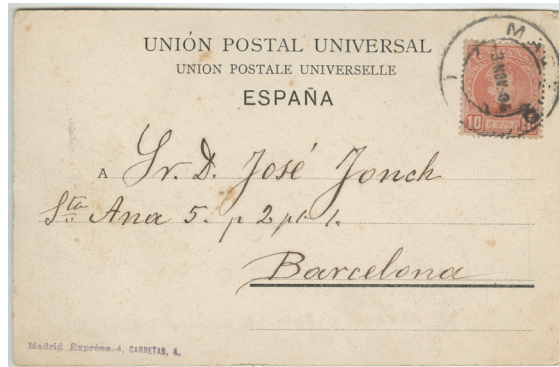 UNIÓN POSTAL UNIVERSAL
UNION POSTALE UNIVERSELLE
ESPAÑA
10 CENT. 10
3 NOV
A Sr. D. José Jonch
Sta Ana 5. p 2
Barcelona
Madrid Exprés 4, CARRETAS, 4.